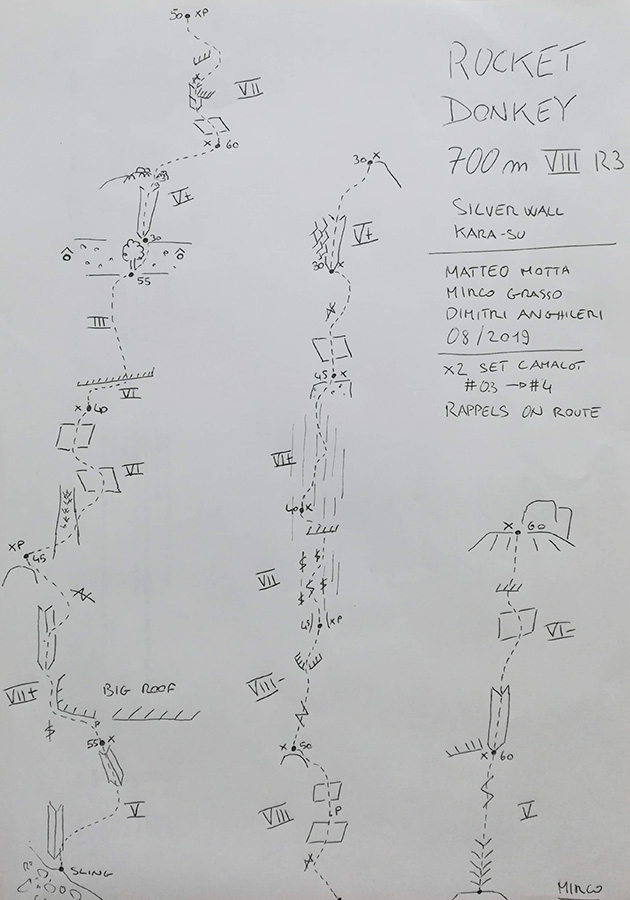 ROCKET
DONKEY
700m VIII R3
SILVER WALL
KARA-SU
MATTEO MOTTA
MIRCO GRASSO
DIMITRI ANGHILERI
08/2019
x2 SET CAMALOT
#03 → #4
RAPPELS ON ROUTE
50 XP
VII
X 60
V+
30
55
III
VI
X 40
VI
XP
45
VII+
BIG ROOF
P
55 X
V
SLING
30 X
V+
30 X
45 X
VII+
40 X
VII
45 XP
VIII-
X 50
VIII
P
X 60
VI-
X 60
V
MIRCO